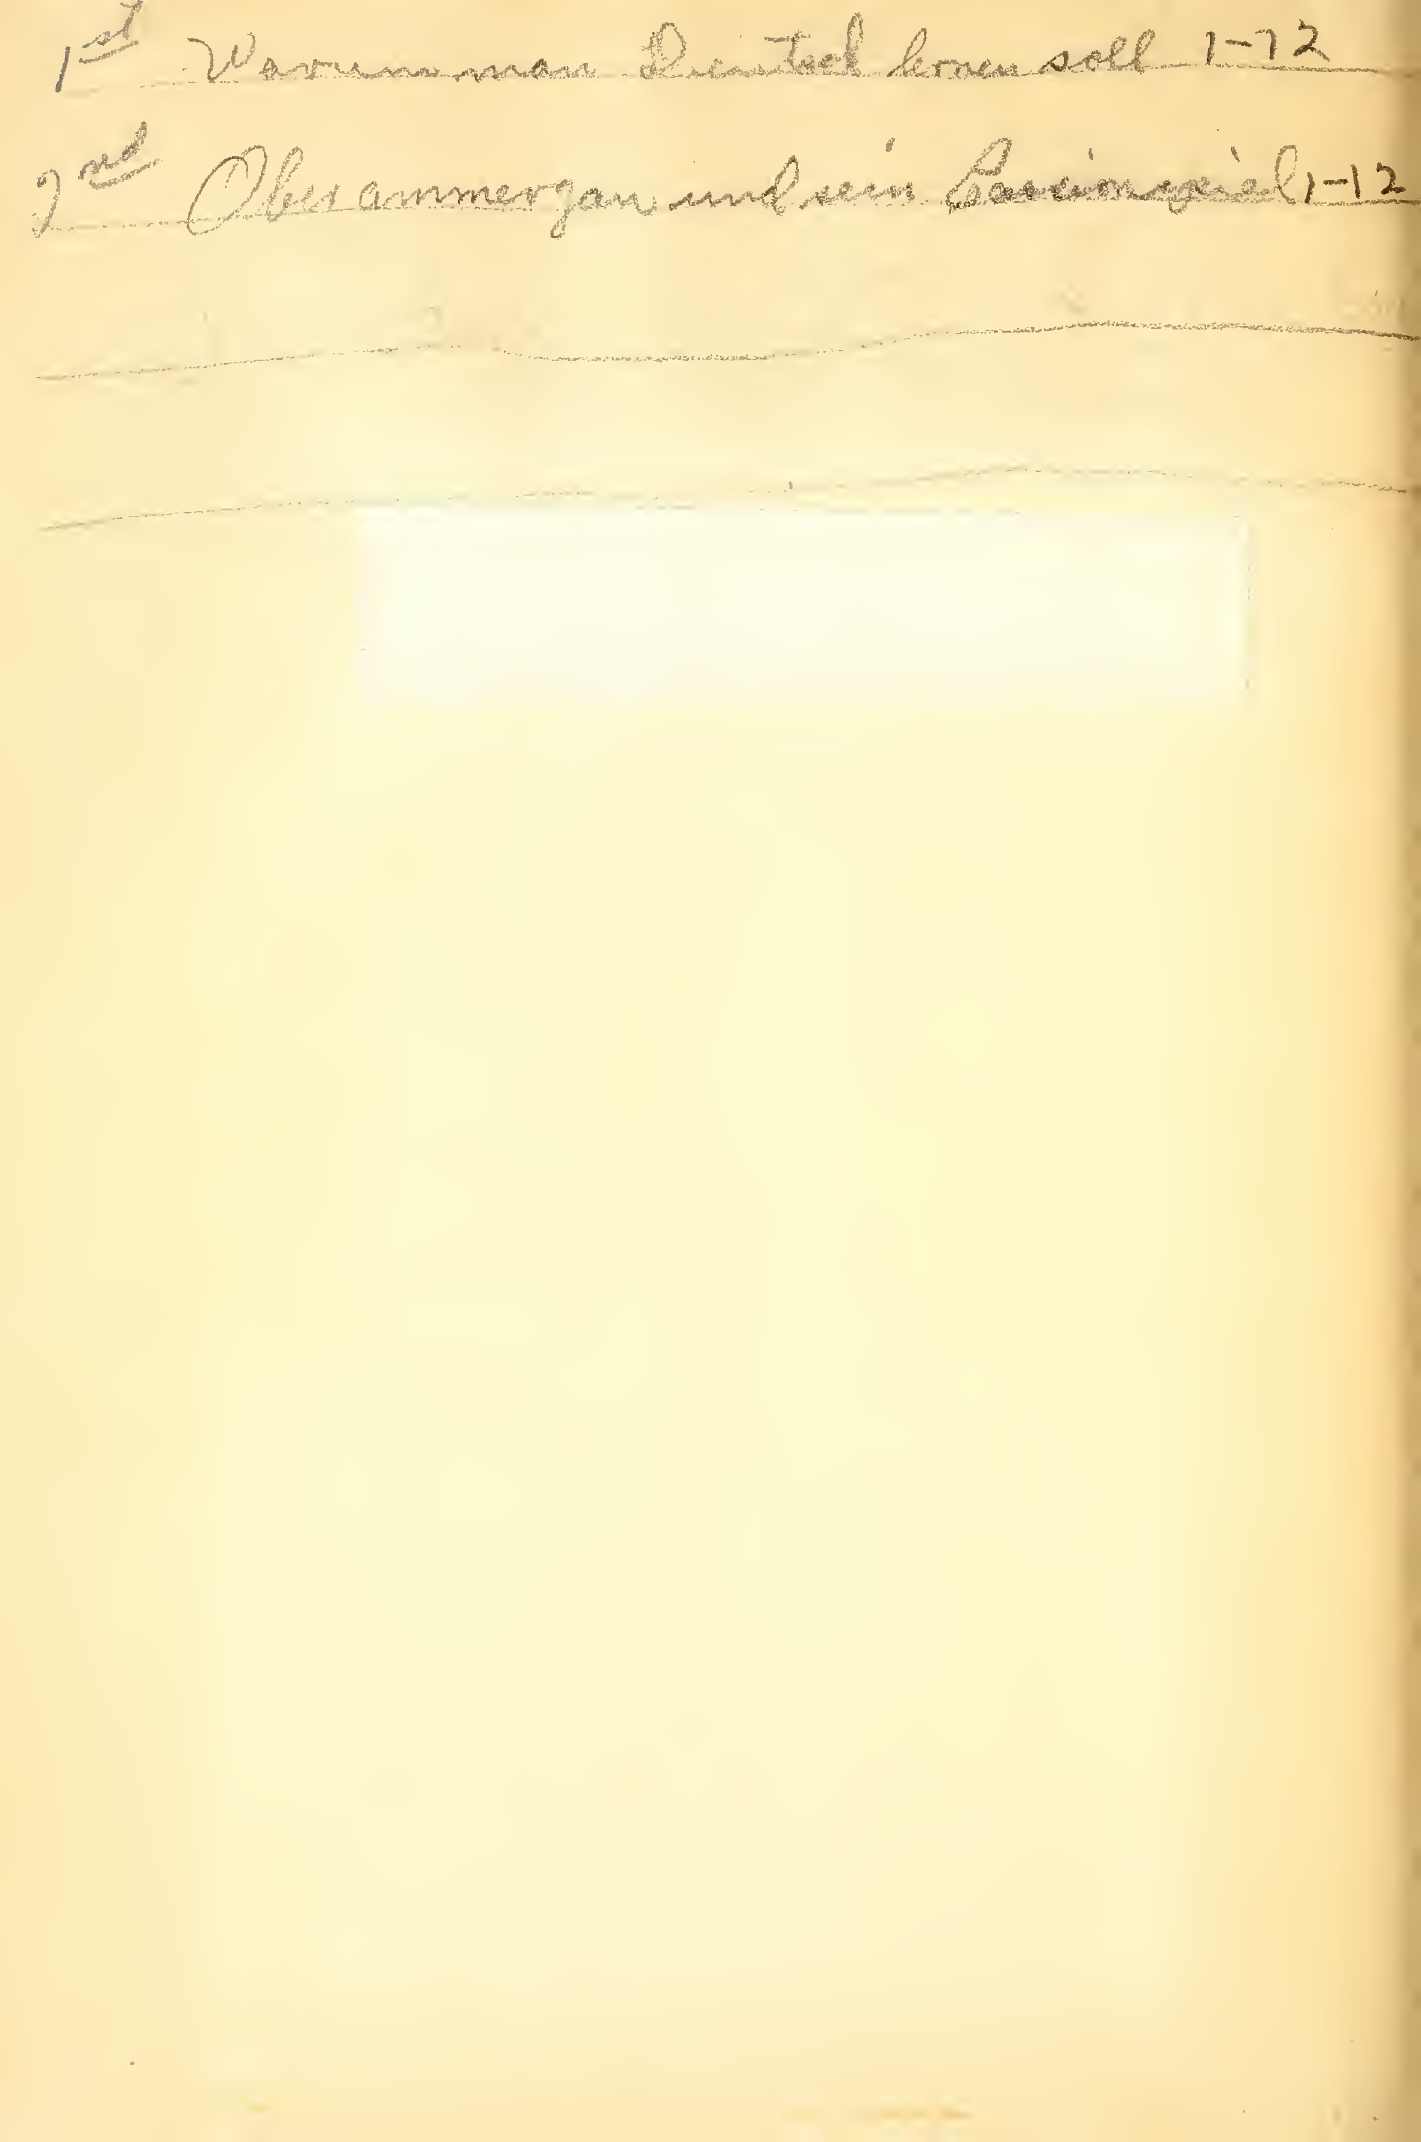 1st Warum man Deutsch lernen soll 1-12
2nd Oberammergau und sein Passionsspiel 1-12